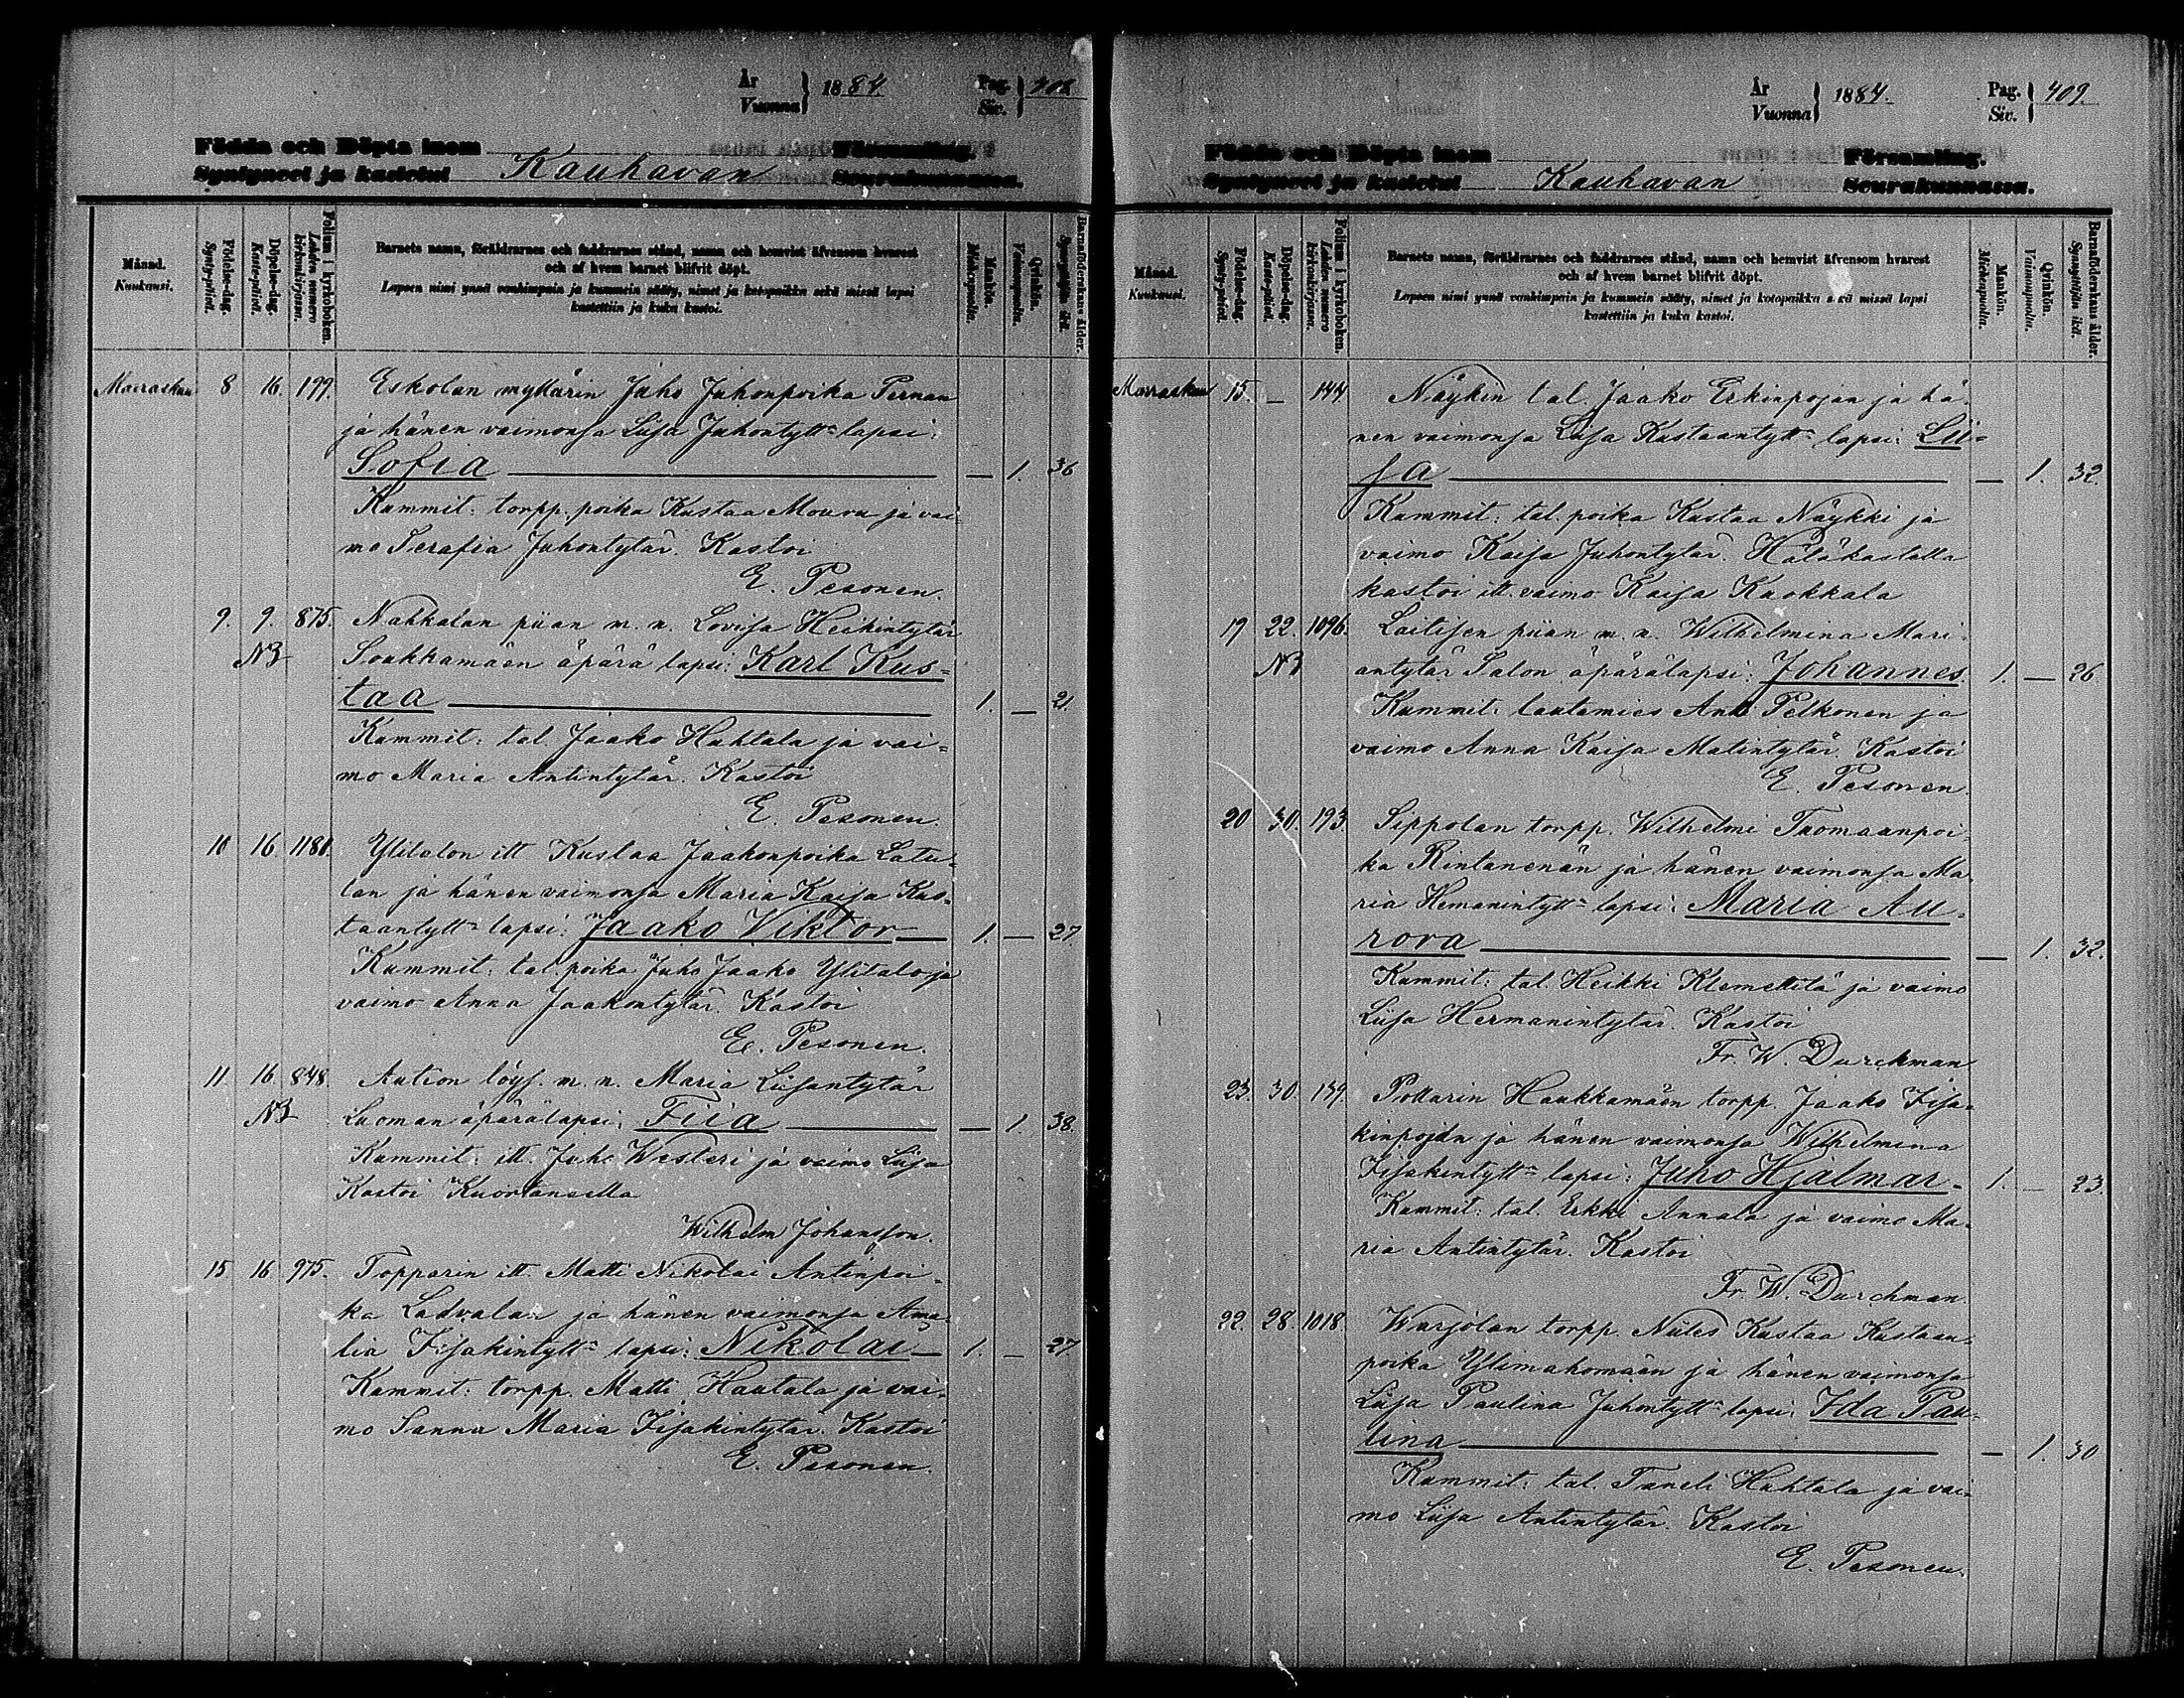 År
Vuonna } 1884.
Pag.
Siv. } 408
Födda och Döpta inom Församling.
Syntyneet ja kastetut Kauhavan Seurakunnassa.
Månad.
Kuukausi.
Födelse-dag.
Synty-päivä.
Döpelse-dag.
Kaste-päivä.
Folium i kyrkoboken.
Lehden numero kirkonkirjassa.
Barnets namn, föräldrarnes och faddrarnes stånd, namn och hemvist äfvensom hvarest
och af hvem barnet blifvit döpt.
Lapsen nimi ynnä vanhimpain ja kummein sääty, nimet ja kotopaikka sekä missä lapsi
kastettiin ja kuka kastoi.
Mankön.
Miehenpuolia.
Qvinkön.
Vaimonpuolia.
Barnaföderskans ålder.
Synnyttäjän ikä.
Marraskuu 8 16. 199. Eskolan myllärin Juho Juhonpoika Pernan
ja hänen vaimonsa Liisa Juhontytt= lapsi:
Sofia — 1. 36
Kummit: torpp. poika Kustaa Mouru ja vai=
mo Serafia Juhontytär. Kastoi
E. Pesonen.
9. 9. 875. Nahkalan piian m. n. Lovisa Heikintytär
NB Soukkamäen äpärä lapsi: Karl Kus=
taa 1. — 21.
Kummit: tal. Jaako Huhtala ja vai=
mo Maria Antintytär. Kastoi
E. Pesonen.
10 16. 1181. Ylitalon itt Kustaa Jaakonpoika Latu=
lan ja hänen vaimonsa Maria Kaisa Kus=
taantytt= lapsi: Jaako Viktor 1. — 27
Kummit: tal. poika Juho Jaako Ylitalo ja
vaimo Anna Jaakontytär. Kastoi
E. Pesonen.
11. 16. 848. Aution löys. m. n. Maria Liisantytär
NB Luoman äpärälapsi: Fiia — 1. 38.
Kummit: itt. Juho Westeri ja vaimo Liisa
Kastoi Kuortaneella
Wilhelm Johansson.
15 16 975. Topparin itt. Matti Nikolai Antinpoi=
ka Ladvalan ja hänen vaimonsa Ama=
lia Iisakintytt= lapsi: Nikolai 1. — 27.
Kummit: torpp. Matti Hautala ja vai=
mo Sanna Maria Iisakintytär. Kastoi
E. Pesonen.
År
Vuonna } 1884.
Pag.
Siv. } 409.
Födda och Döpta inom Församling.
Syntyneet ja kastetut Kauhavan Seurakunnassa.
Månad.
Kuukausi.
Födelse-dag.
Synty-päivä.
Döpelse-dag.
Kaste-päivä.
Folium i kyrkoboken.
Lehden numero kirkonkirjassa.
Barnets namn, föräldrarnes och faddrarnes stånd, namn och hemvist äfvensom hvarest
och af hvem barnet blifvit döpt.
Lapsen nimi ynnä vanhimpain ja kummein sääty, nimet ja kotopaikka sekä missä lapsi
kastettiin ja kuka kastoi.
Mankön.
Miehenpuolia.
Qvinkön.
Vaimonpuolia.
Barnaföderskans ålder.
Synnyttäjän ikä.
Marraskuu 15. — 144 Näykin tal. Jaako Erkinpojan ja hä=
nen vaimonsa Liisa Kustaantytt= lapsi: Lii=
sa — 1. 32.
Kummit: tal. poika Kustaa Näykki ja
vaimo Kaisa Juhontytär. Hätäkastella
kastoi itt. vaimo Kaisa Kuokkala
19 22. 1096. Laitisen piian m. n. Wilhelmina Mari=
NB antytär Salon äpärälapsi: Johannes. 1. — 26
Kummit: lautamies Antti Pelkonen ja
vaimo Anna Kaisa Matintytär. Kastoi
E. Pesonen.
20 30. 193. Sippolan torpp. Wilhelmi Tuomaanpoi=
ka Rintanenän ja hänen vaimonsa Ma=
ria Hemanintytt= lapsi: Maria Au=
rora — 1. 32.
Kummit: tal. Heikki Klemettilä ja vaimo
Liisa Hermanintytär. Kastoi
Fr. W. Durchman
23. 30. 139. Pottarin Haukkamäen torpp. Jaako Iisa=
kinpojan ja hänen vaimonsa Wilhelmina
Iisakintytt= lapsi: Juho Hjalmar. 1. — 23.
Kummit: tal. Erkki Annala ja vaimo Ma=
ria Antintytär. Kastoi
Fr. W. Durchman.
22. 28. 1018. Warjolan torpp. Niiles Kustaa Kustaan=
poika Ylimahomäen ja hänen vaimonsa
Liisa Paulina Juhontytt= lapsi: Ida Pau=
lina — 1. 30
Kummit: tal. Taneli Huhtala ja vai=
mo Liisa Antintytär. Kastoi
E. Pesonen.